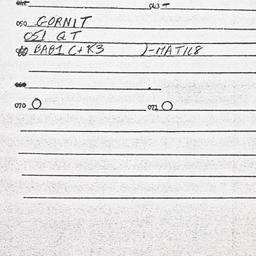 043
050 GORNIT
051 QT
060 BAB1 C+K3 )-MATIL8
070 O 072 O